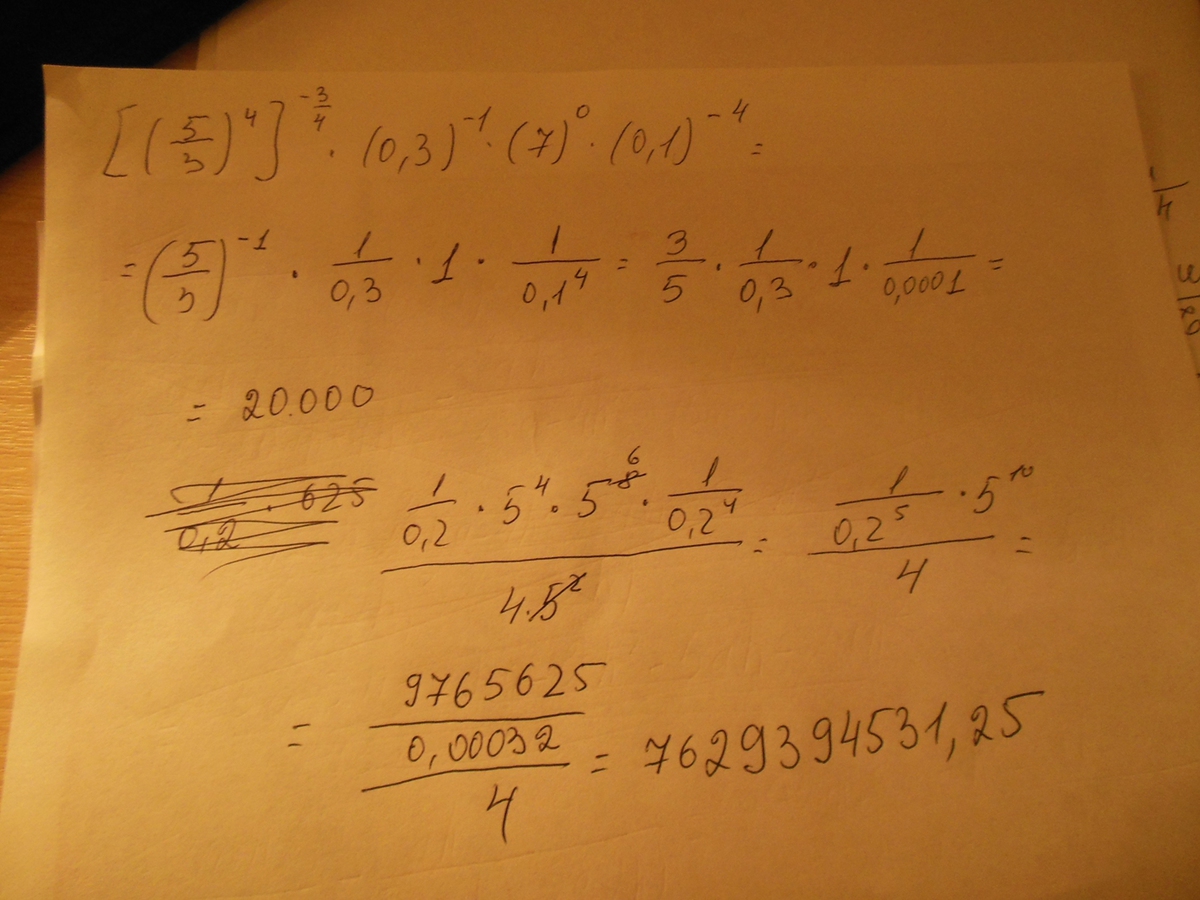 [(5/3)^4]^(-3/4) · (0,3)^-1 · (7)^0 · (0,1)^-4 =
= (5/3)^-1 · 1/0,3 · 1 · 1/0,1^4 = 3/5 · 1/0,3 · 1 · 1/0,0001 =
= 20.000
(1/0,2 · 5^4 · 5^6 · 1/0,2^4)/(4 · 5^2) = (1/0,2^5 · 5^10)/4 =
= (9765625/0,00032)/4 = 7629394531,25